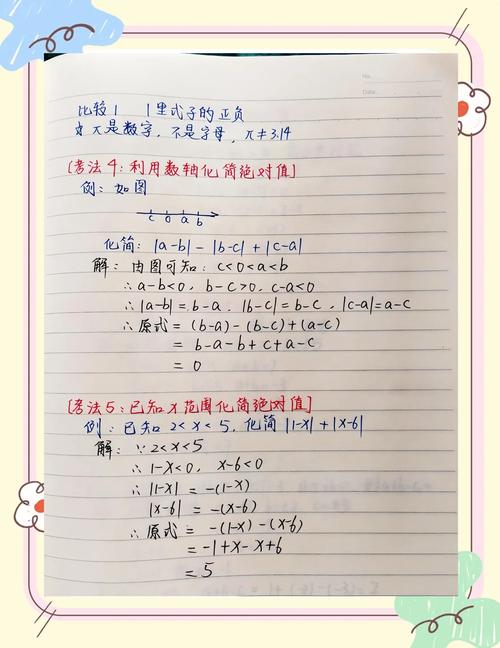 No.
Date.
比较| |里式子的正负
☆π是数字,不是字母,π≠3.14
[考法4:利用数轴化简绝对值]
例:如图
c 0 a b
化简:|a-b|-|b-c|+|c-a|
解:由图可知:c<0<a<b
∴a-b<0, b-c>0, c-a<0
∴|a-b|=b-a, |b-c|=b-c, |c-a|=a-c
∴原式=(b-a)-(b-c)+(a-c)
=b-a-b+c+a-c
=0
[考法5:已知x范围化简绝对值]
例:已知2<x<5,化简|1-x|+|x-6|
解:∵2<x<5
∴1-x<0, x-6<0
∴|1-x|=-(1-x)
|x-6|=-(x-6)
∴原式=-(1-x)-(x-6)
=-1+x-x+6
=5